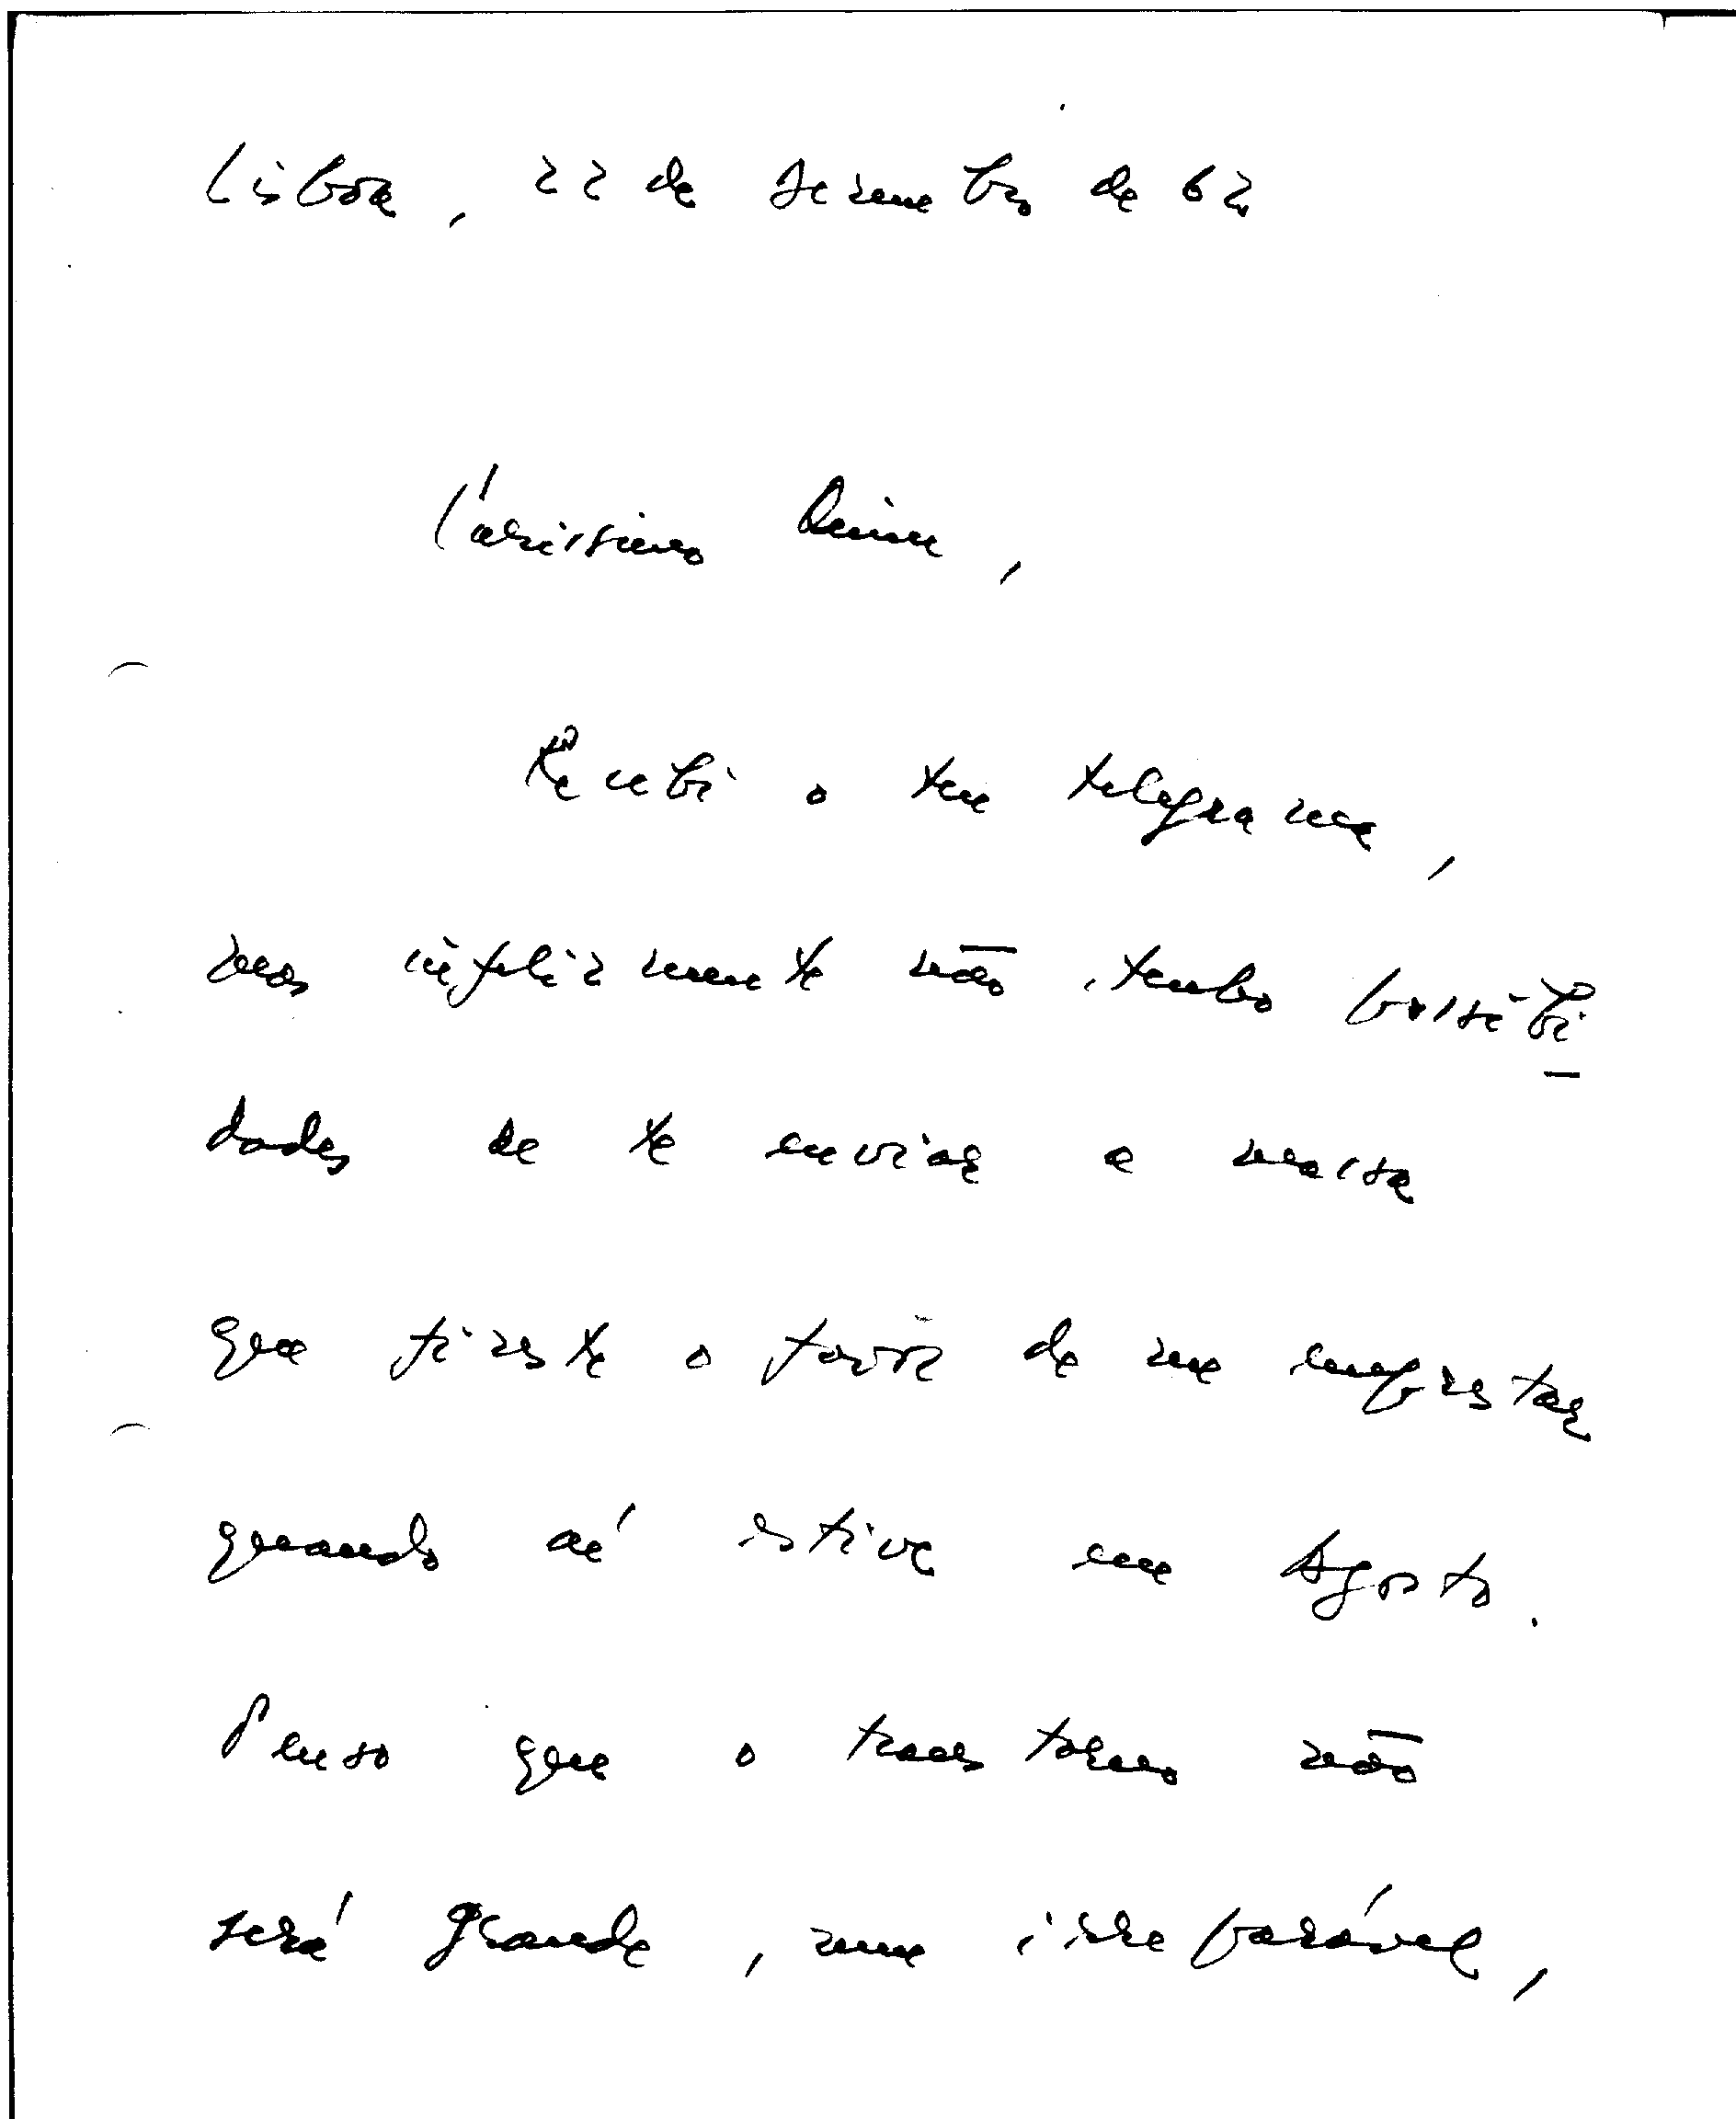 Lisboa, 22 de Dezembro de 62
Caríssimo
Recebi o teu telegrama,
mas infelizmente não tenho possibi
dades de te enviar a massa
que fizeste o favor de me emprestar
quando aí estive em Agosto.
Penso que o transtorno não
será grande, nem irreparável,